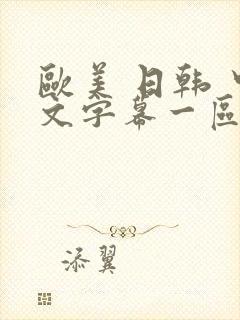 歐美日韩中
文字幕一區
添翼